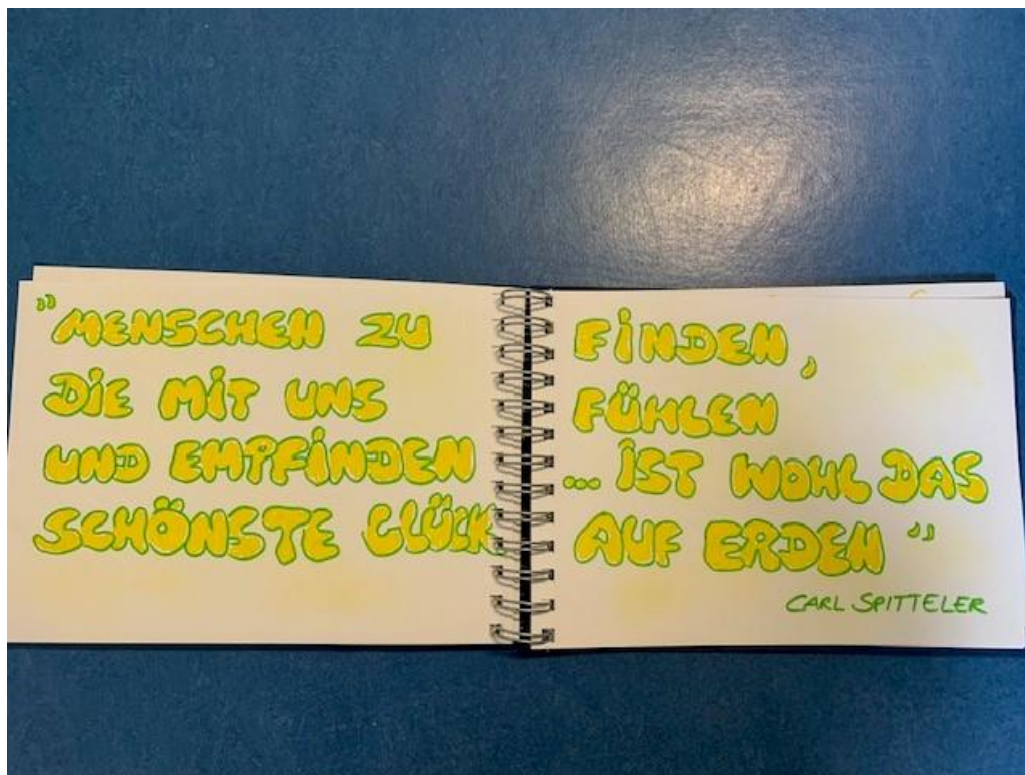 "MENSCHEN ZU FINDEN,
DIE MIT UNS FÜHLEN
UND EMPFINDEN ... IST WOHL DAS
SCHÖNSTE GLÜCK AUF ERDEN"
CARL SPITTELER